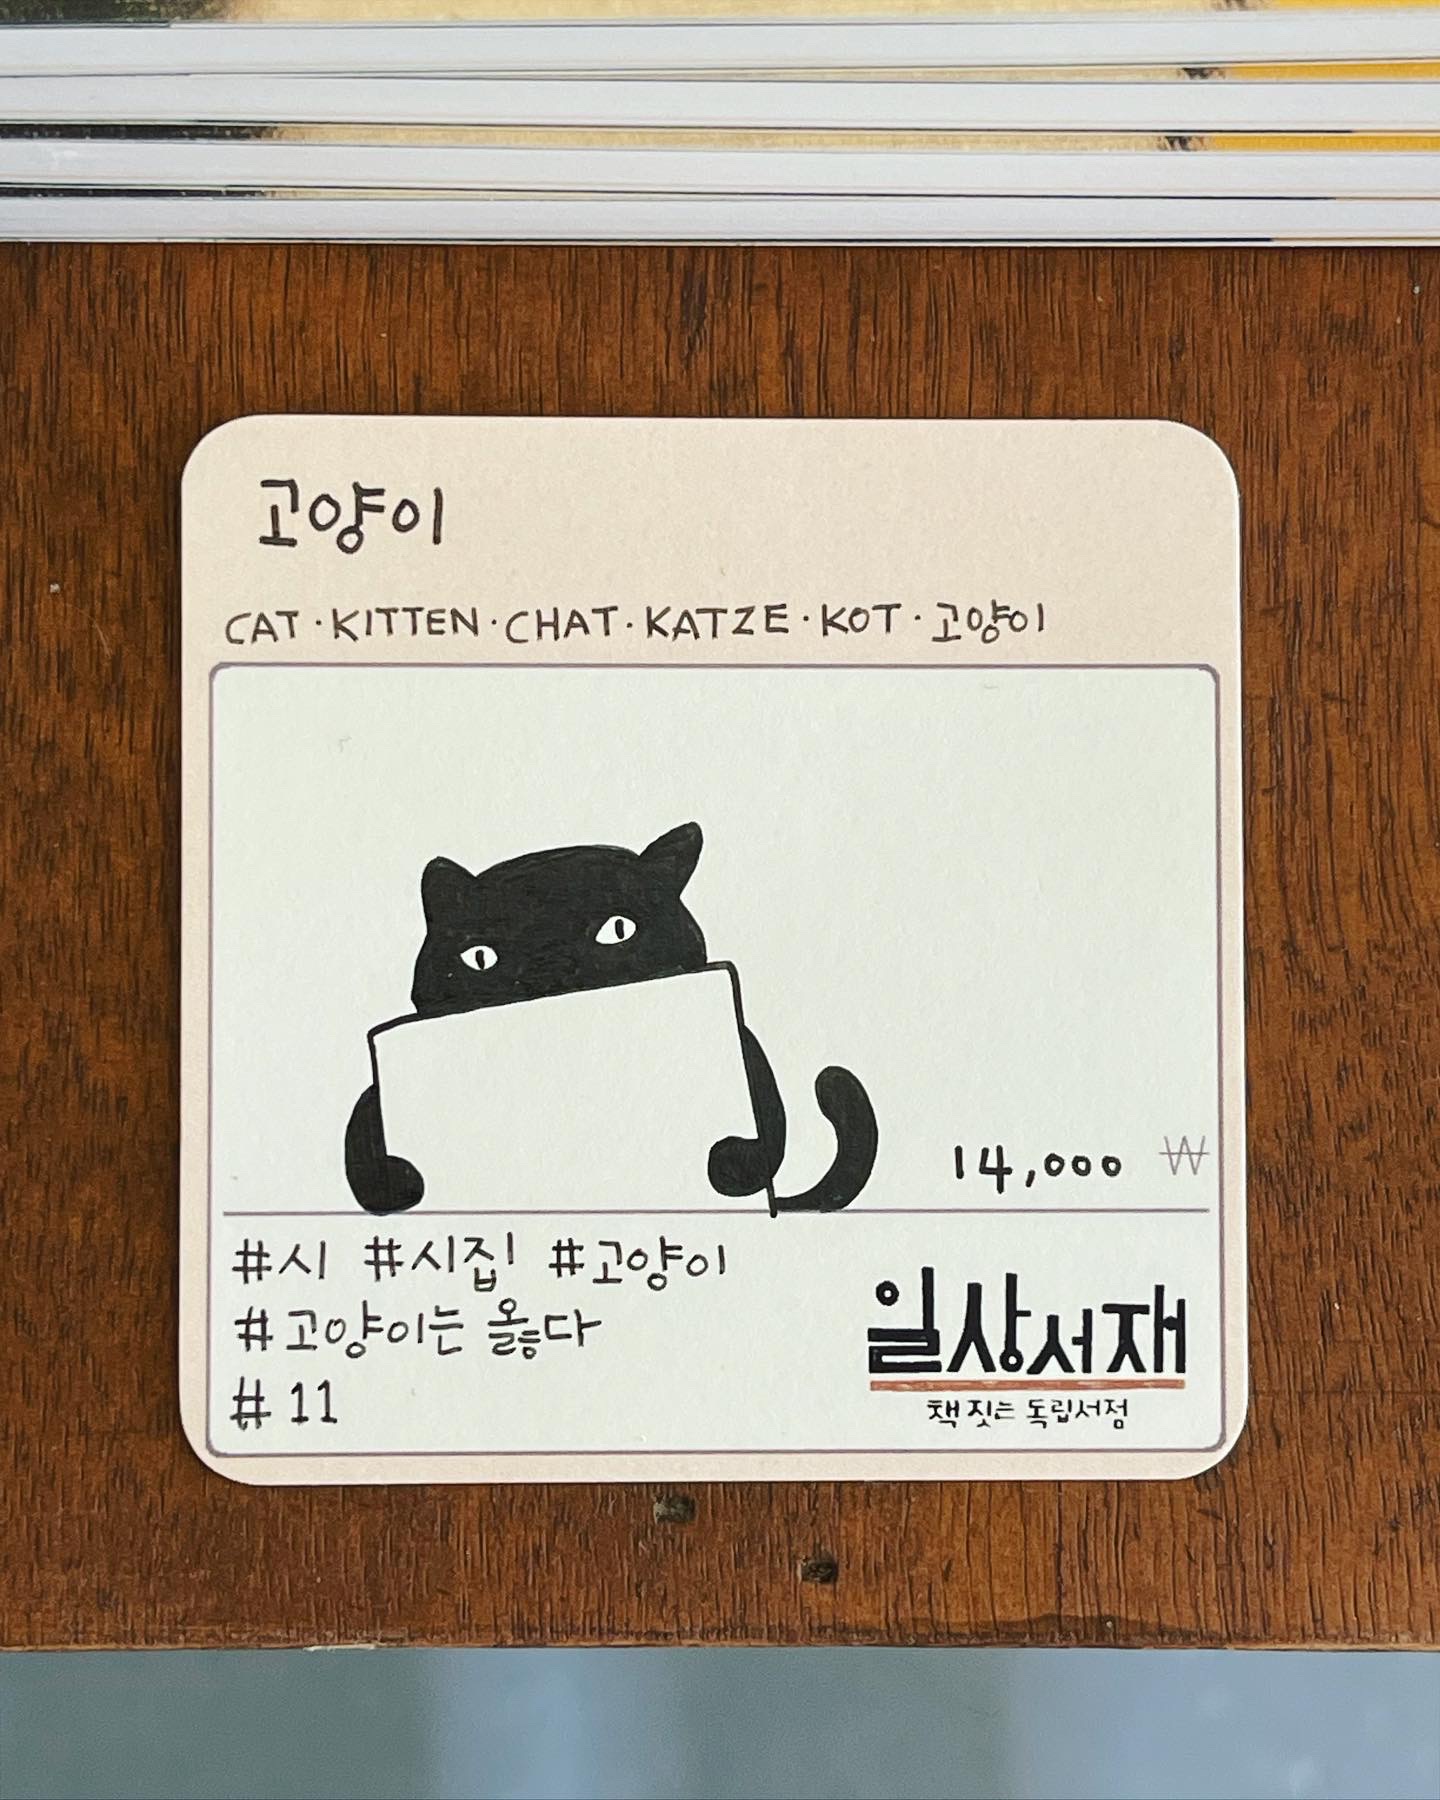 고양이
CAT · KITTEN · CHAT · KATZE · KOT · 고양이
14,000 ₩
#시 #시집 #고양이
#고양이는 옳다
#11
일상서재
책 짓는 독립서점